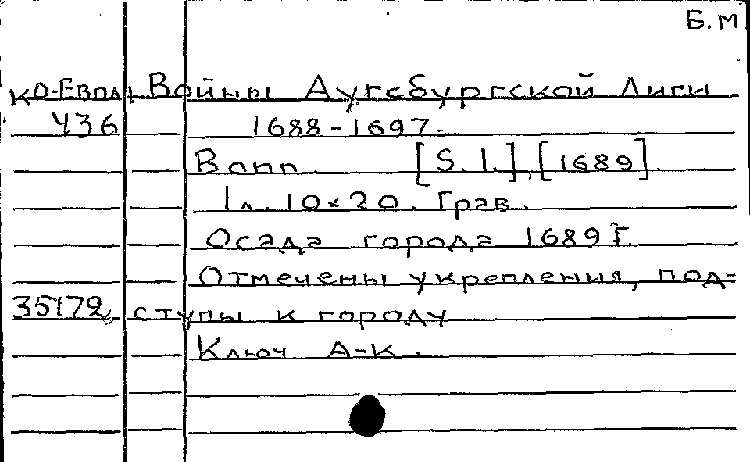 Б.М
КО-Евпл. Войны Аугсбургской Лиги
436 1688-1697.
Bonn [S.l.], [1689]
1л. 10×20. Грав.
Осада города 1689 г.
Отмечены укрепления, под-
35172 ступы к городу
Ключ А-К.